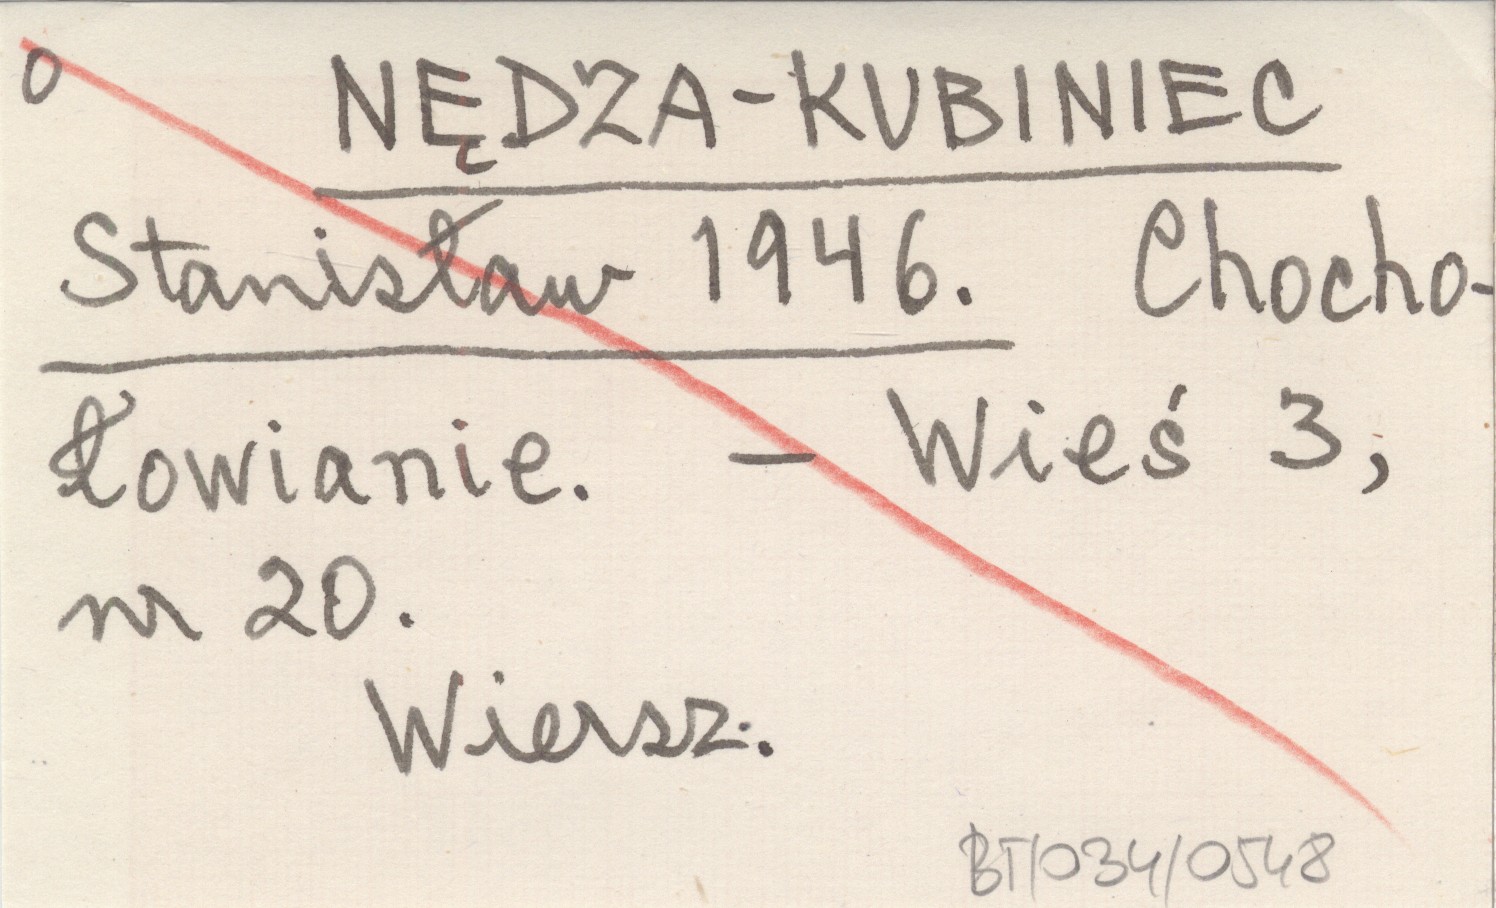 O
NĘDZA-KUBINIEC
Stanisław 1946. Chocho-
łowianie. - Wieś 3,
nr 20.
Wiersz.
BT/034/0548